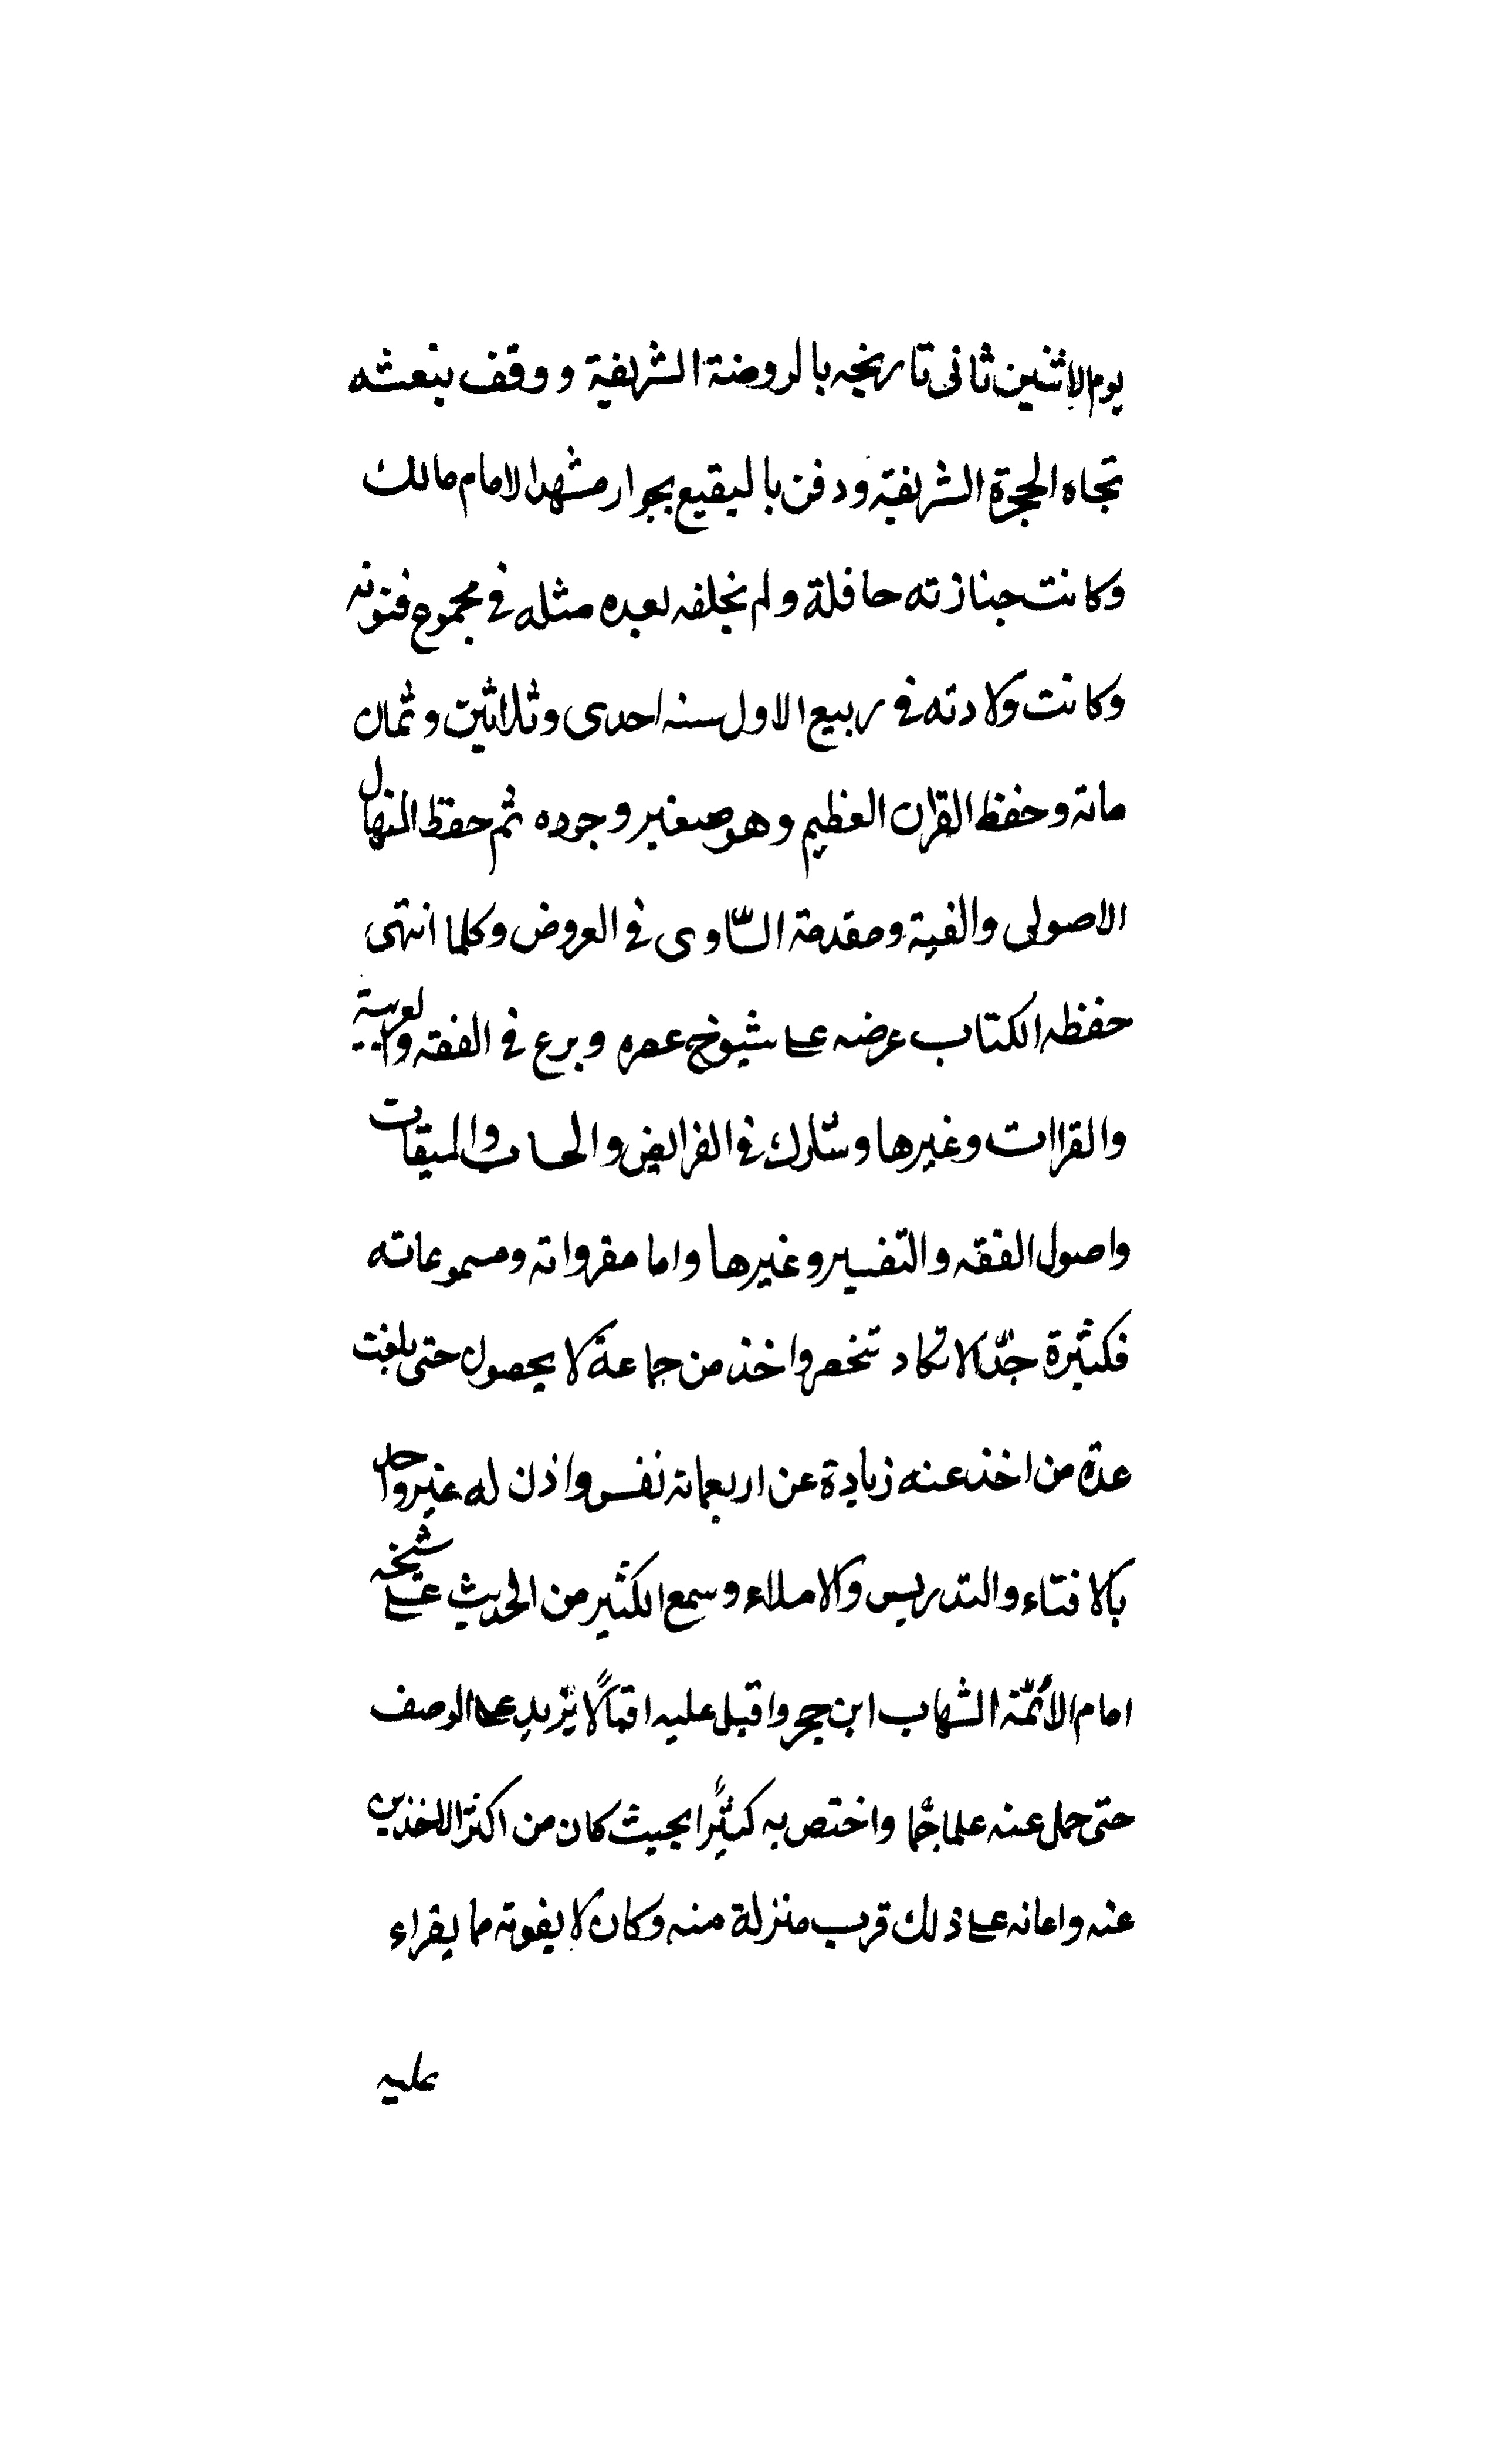 يوم الاثنين ثاني تاريخه بالروضة الشريفة ووقف بنعشه
تجاه الحجرة الشريفة ودفن بالبقيع بجوار مشهد الامام مالك
وكانت جنازته حافلة ولم يخلف بعده مثله في مجموع فنونه
وكانت ولادته في ربيع الاول سنه احدى وثلاثين وثمان
مائة وحفظ القران العظيم وهو صغير وجوده ثم حفظ المنهاج
الاصولى والفية ومقدمة الساوى في العروض وكلما انتهى
حفظه الكتاب عرضه على شيوخ عصره وبرع في الفقه والعربية
والقراات وغيرها وشارك في الفرايض والحساب والميقات
واصول الفقه والتفسير وغيرها واما مقرواته ومسموعاته
فكثيرة جدّا لا تكاد تنحصر واخذ من جماعة لا يحصون حتى بلغت
عدة من اخذ عنه زيادة عن اربعمائة نفس واذن له غير واحد
بالافتاء والتدريس والاملاء وسمع الكثير من الحديث على شيخه
امام الأئمّة الشهاب ابن حجر واقبل عليه اقبالًا يزيد على الوصف
حتى حمل عنه علما جمّا واختص به كثيرًا بحيث كان من اكثر الاخذين
عنه واعانه على ذلك قرب منزلة منه وكان لا يفوته مما يقراء
عليه